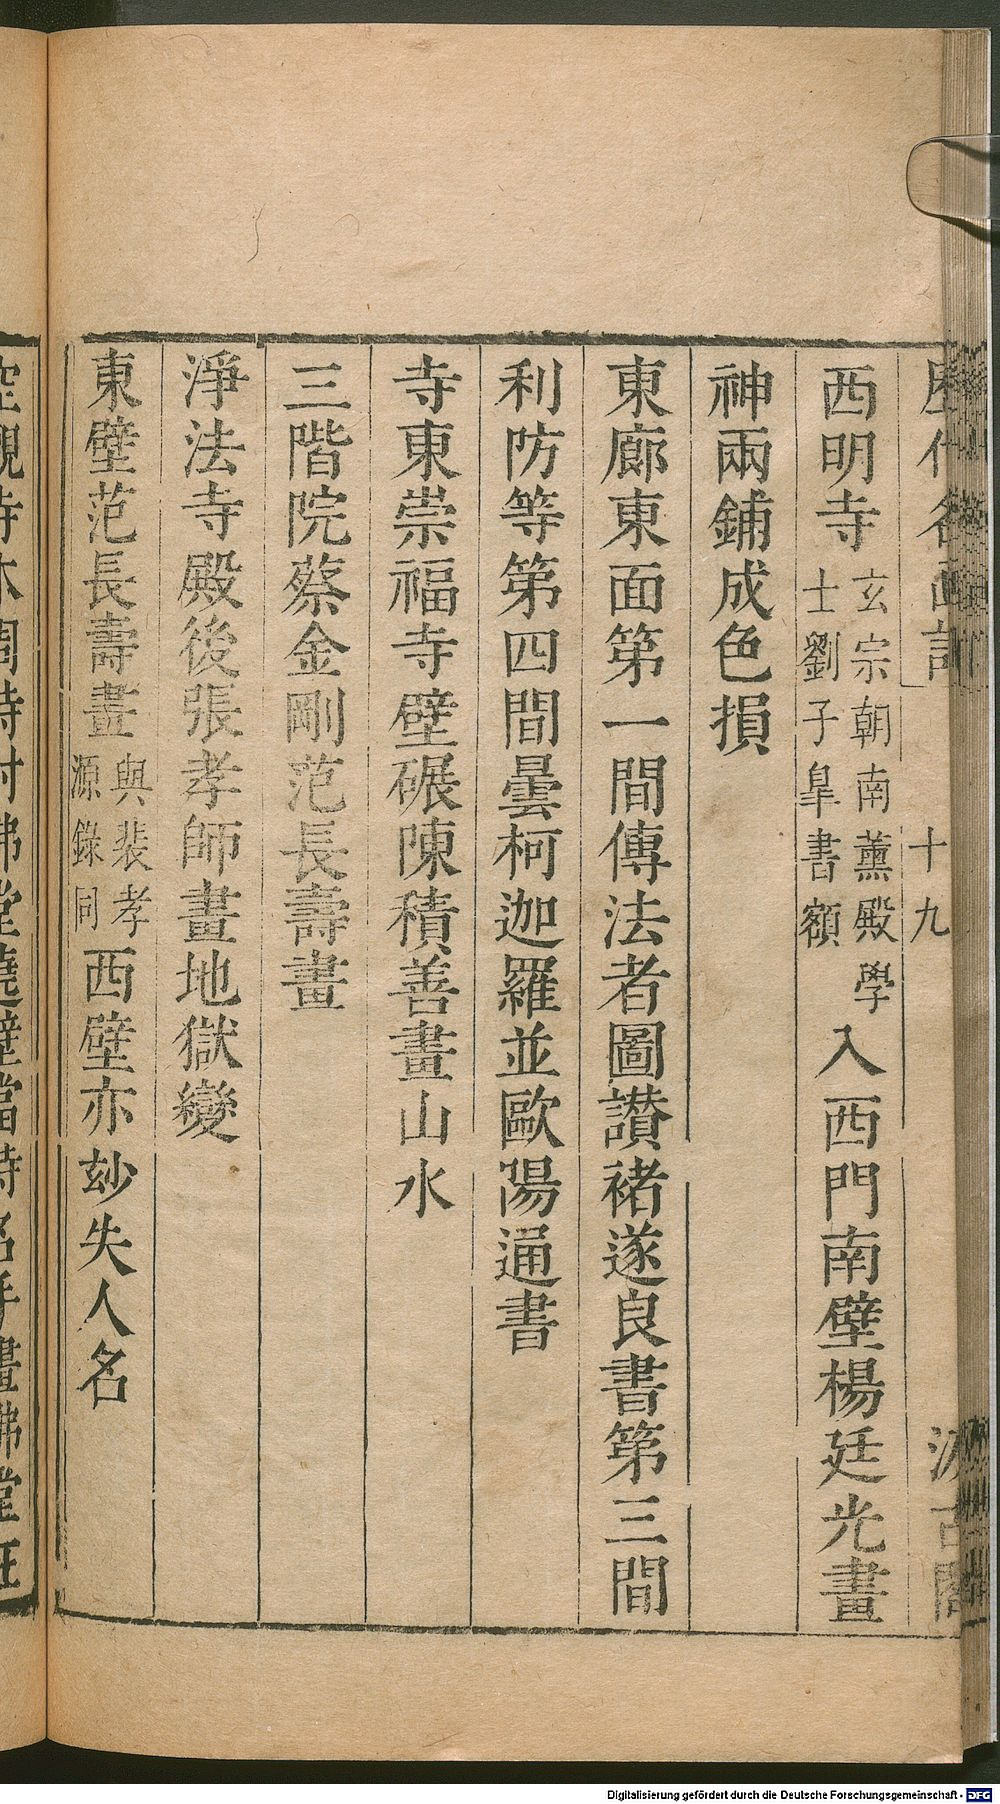 歷代名畫記 十九 汲古閣
西明寺玄宗朝南薰殿學士劉子臯書額入西門南壁楊廷光畫
神兩鋪成色損
東廊東面第一間傳法者圖讚褚遂良書第三間
利防等第四間曇柯迦羅並歐陽通書
寺東崇福寺壁碾陳積善畫山水
三階院蔡金剛范長壽畫
淨法寺殿後張孝師畫地獄變
東壁范長壽畫與裴孝源錄同西壁亦玅失人名
空觀寺本周時村佛堂遶壁當時名手畫佛堂在
Digitalisierung gefördert durch die Deutsche Forschungsgemeinschaft - DFG